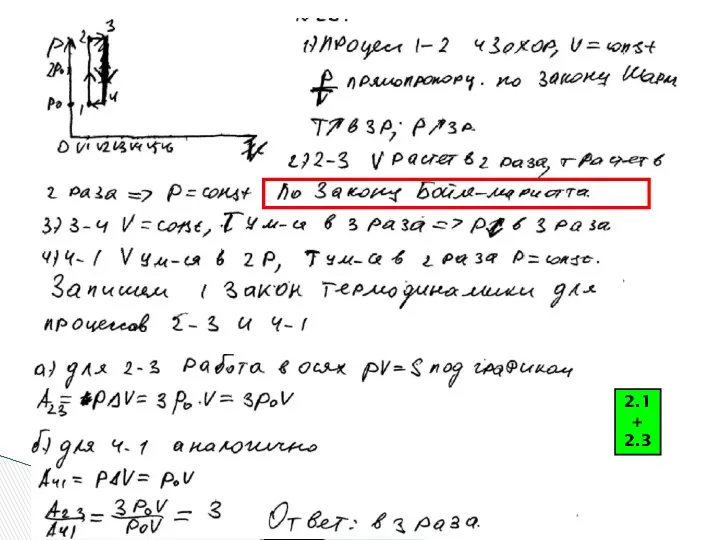 1) процесс 1-2 изохор, V = const
P 2 3
2P₀
P₀ 1 4
P/V прямопропорц. по закону Шарл
T↑ в 3 р, P↑ 3 р.
0 V1 V2 V3 V4 V5 V6 V
2) 2-3 V растет в 2 раза, T растет в
2 раза => P = const по закону Бойля-мариотта.
3) 3-4 V = const, T ум-ся в 3 раза => P↓ в 3 раза
4) 4-1 V ум-ся в 2 р, T ум-ся в 2 раза P = const.
Запишем 1 закон термодинамики для
процессов 2-3 и 4-1
а) для 2-3 работа в осях pV = S под графиком
A₂₃ = PΔV = 3P₀·V = 3P₀V
2.1
+
2.3
б) для 4-1 аналогично
A₄₁ = PΔV = P₀V
A₂₃/A₄₁ = 3P₀V/P₀V = 3 Ответ: в 3 раза.